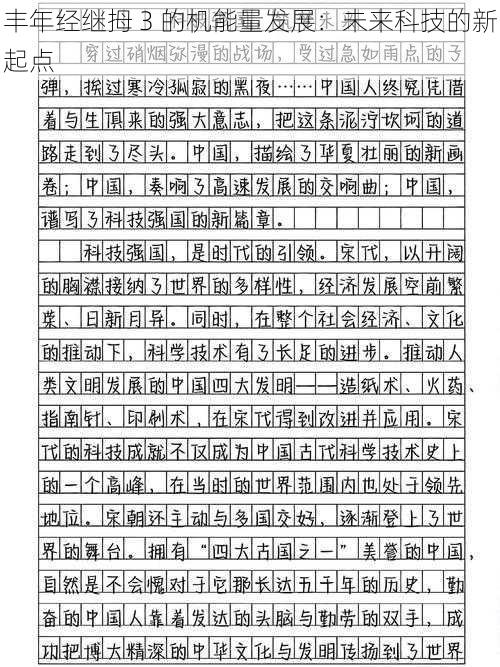 丰年经继拇 3 的机能量发展：未来科技的新
起点
穿过硝烟弥漫的战场，受过急如雨点的子
弹，挨过寒冷孤寂的黑夜……中国人终究凭借
着与生俱来的强大意志，把这条泥泞坎坷的道
路走到了尽头。中国，描绘了华夏壮丽的新画
卷；中国，奏响了高速发展的交响曲；中国，
谱写了科技强国的新篇章。
科技强国，是时代的引领。宋代，以开阔
的胸襟接纳了世界的多样性，经济发展空前繁
荣、日新月异。同时，在整个社会经济、文化
的推动下，科学技术有了长足的进步。推动人
类文明发展的中国四大发明——造纸术、火药、
指南针、印刷术，在宋代得到改进并应用。宋
代的科技成就不仅成为中国古代科学技术史上
的一个高峰，在当时的世界范围内也处于领先
地位。宋朝还主动与多国交好，逐渐登上了世
界的舞台。拥有“四大古国之一”美誉的中国，
自然是不会愧对于它那长达五千年的历史，勤
奋的中国人靠着发达的头脑与勤劳的双手，成
功把博大精深的中华文化与发明传扬到了世界